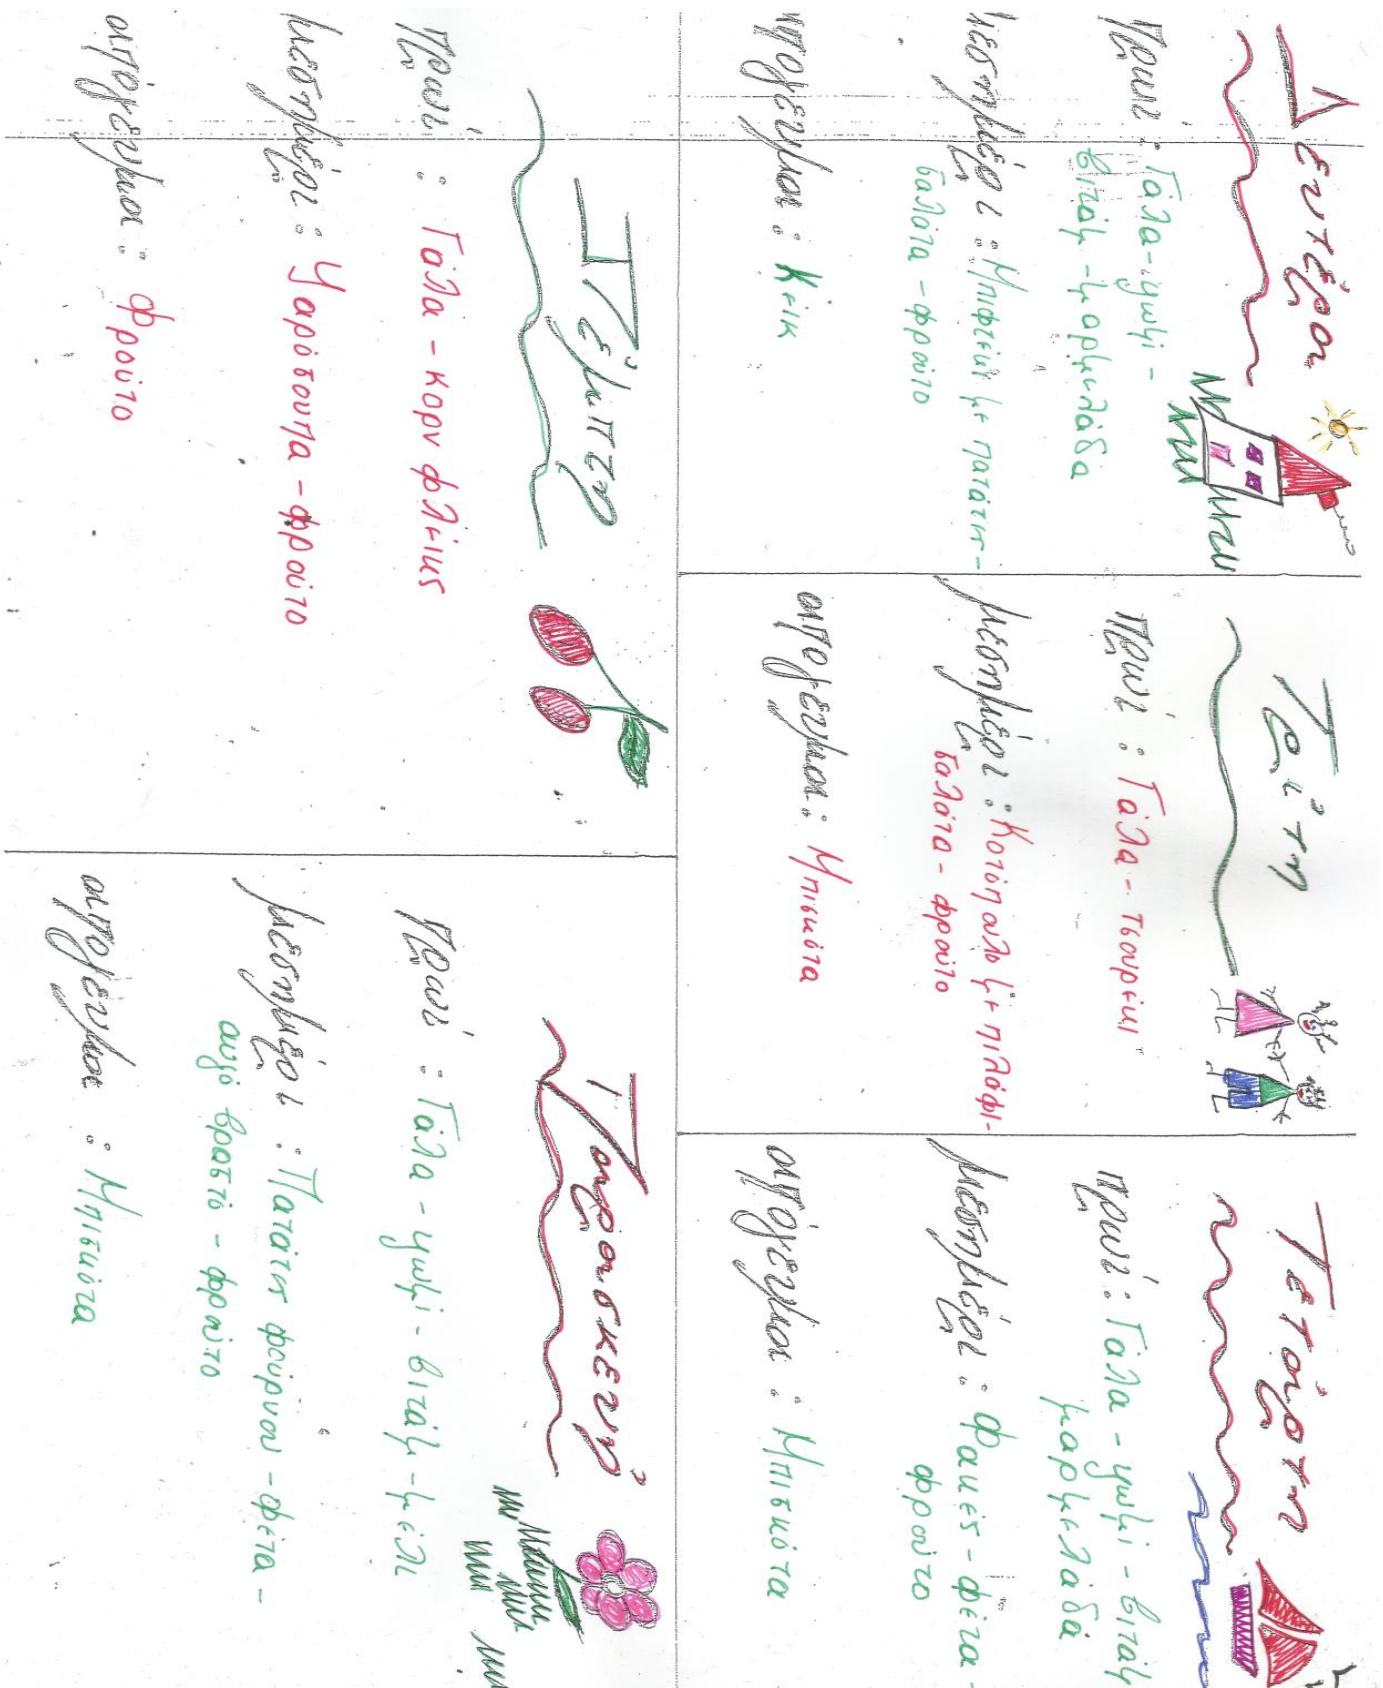 Δευτέρα
Πρωί: Γάλα-ψωμί-
βιτάμ-μαρμελάδα
μεσημέρι: Μπιφτέκι με πατάτες-
σαλάτα-φρούτο
απόγευμα: Κέικ
Τρίτη
Πρωί: Γάλα-τσουρέκι
μεσημέρι: Κοτόπουλο με πιλάφι-
σαλάτα-φρούτο
απόγευμα: Μπισκότα
Τετάρτη
πρωί: Γάλα-ψωμί-βιτάμ
μαρμελάδα
μεσημέρι: Φακές-φέτα-
φρούτο
απόγευμα: Μπισκότα
Πέμπτη
Πρωί: Γάλα-κορν φλέικς
μεσημέρι: Ψαρόσουπα-φρούτο
απόγευμα: φρούτο
Παρασκευή
Πρωί: Γάλα-ψωμί-βιτάμ-μέλι
μεσημέρι: Πατάτες φούρνου-φέτα-
αυγό βραστό-φρούτο
απόγευμα: Μπισκότα